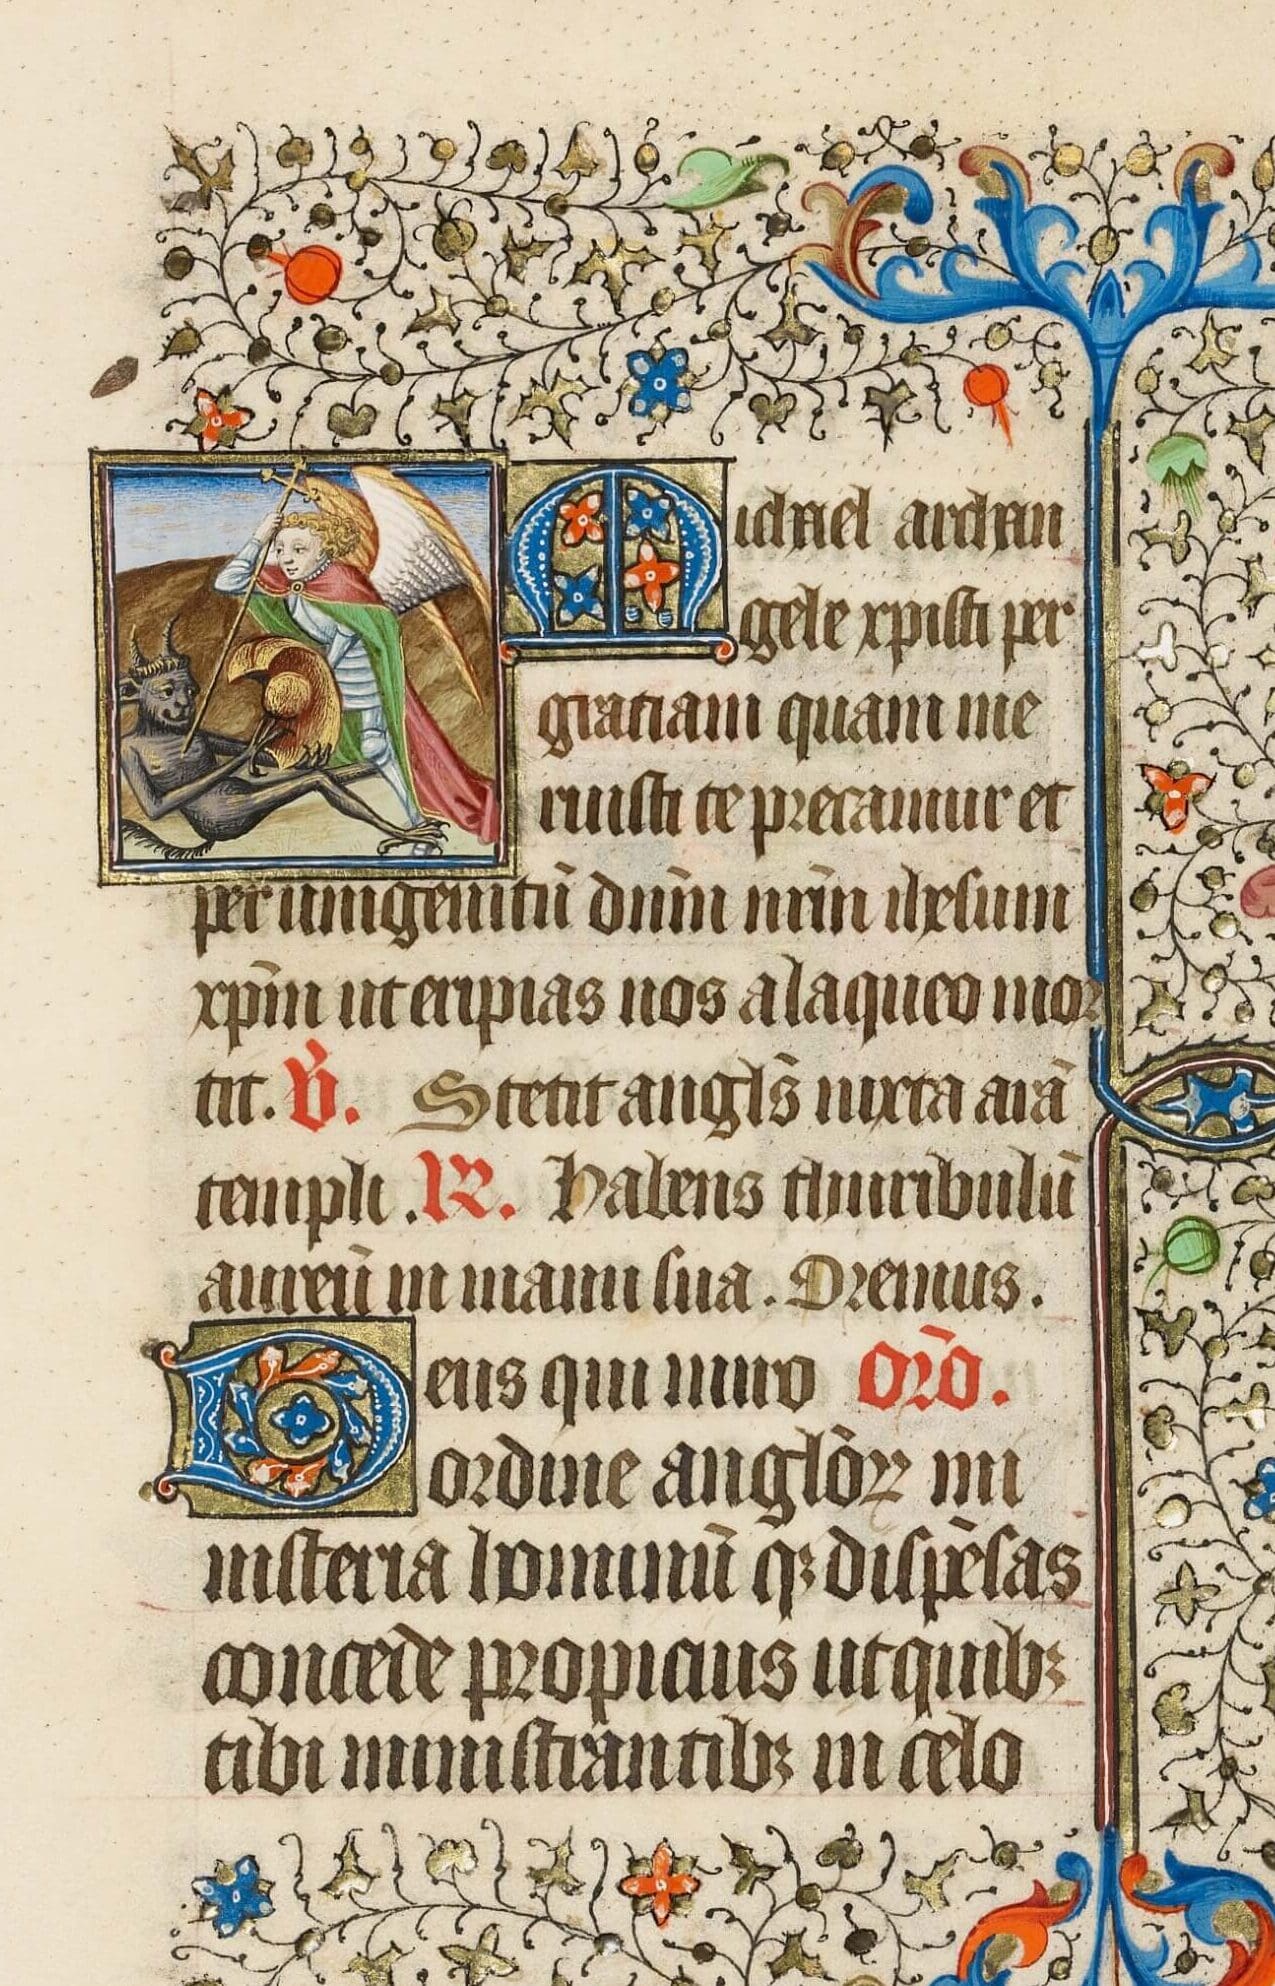 Michael archan
gele xpisti per
gratiam quam me
ruisti te precamur et
per unigenitū dnm̄ nrm̄ ihesum
xpm̄ ut eripias nos a laqueo mor
tit. V̄. Stetit angls̄ iuxta arā
templi. R. Habens thuribulū
aureū in manu sua. Oremus.
Deus qui miro orō.
ordine anglōꝝ mi
nisteria hominū qꝫ dispēsas
concede propicius ut quibꝫ
tibi ministrantibꝫ in celo